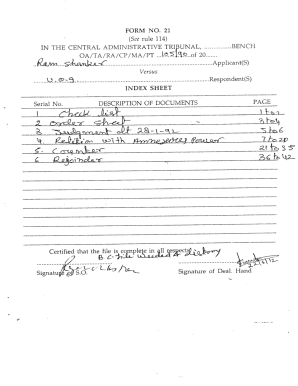 FORM NO. 21
(See rule 114)
IN THE CENTRAL ADMINISTRATIVE TRIBUNAL, ........BENCH
OA/TA/RA/CP/MA/PT 105/90 of 20......
Ram Shanker Applicant(S)
Versus
U.O.I Respondent(S)
INDEX SHEET
Serial No. DESCRIPTION OF DOCUMENTS PAGE
1 Check list 1 to 2
2 order sheet 3 to 4
3 Judgment dt 28-1-92 5 to 6
4. Petition with Annexures Power 7 to 20
5. Counter 21 to 35
6 Rejoinder 36 to 42
Certified that the file is complete in all respects.
B.C file weeded &
Signature of S.O. Signature of Deal. Hand